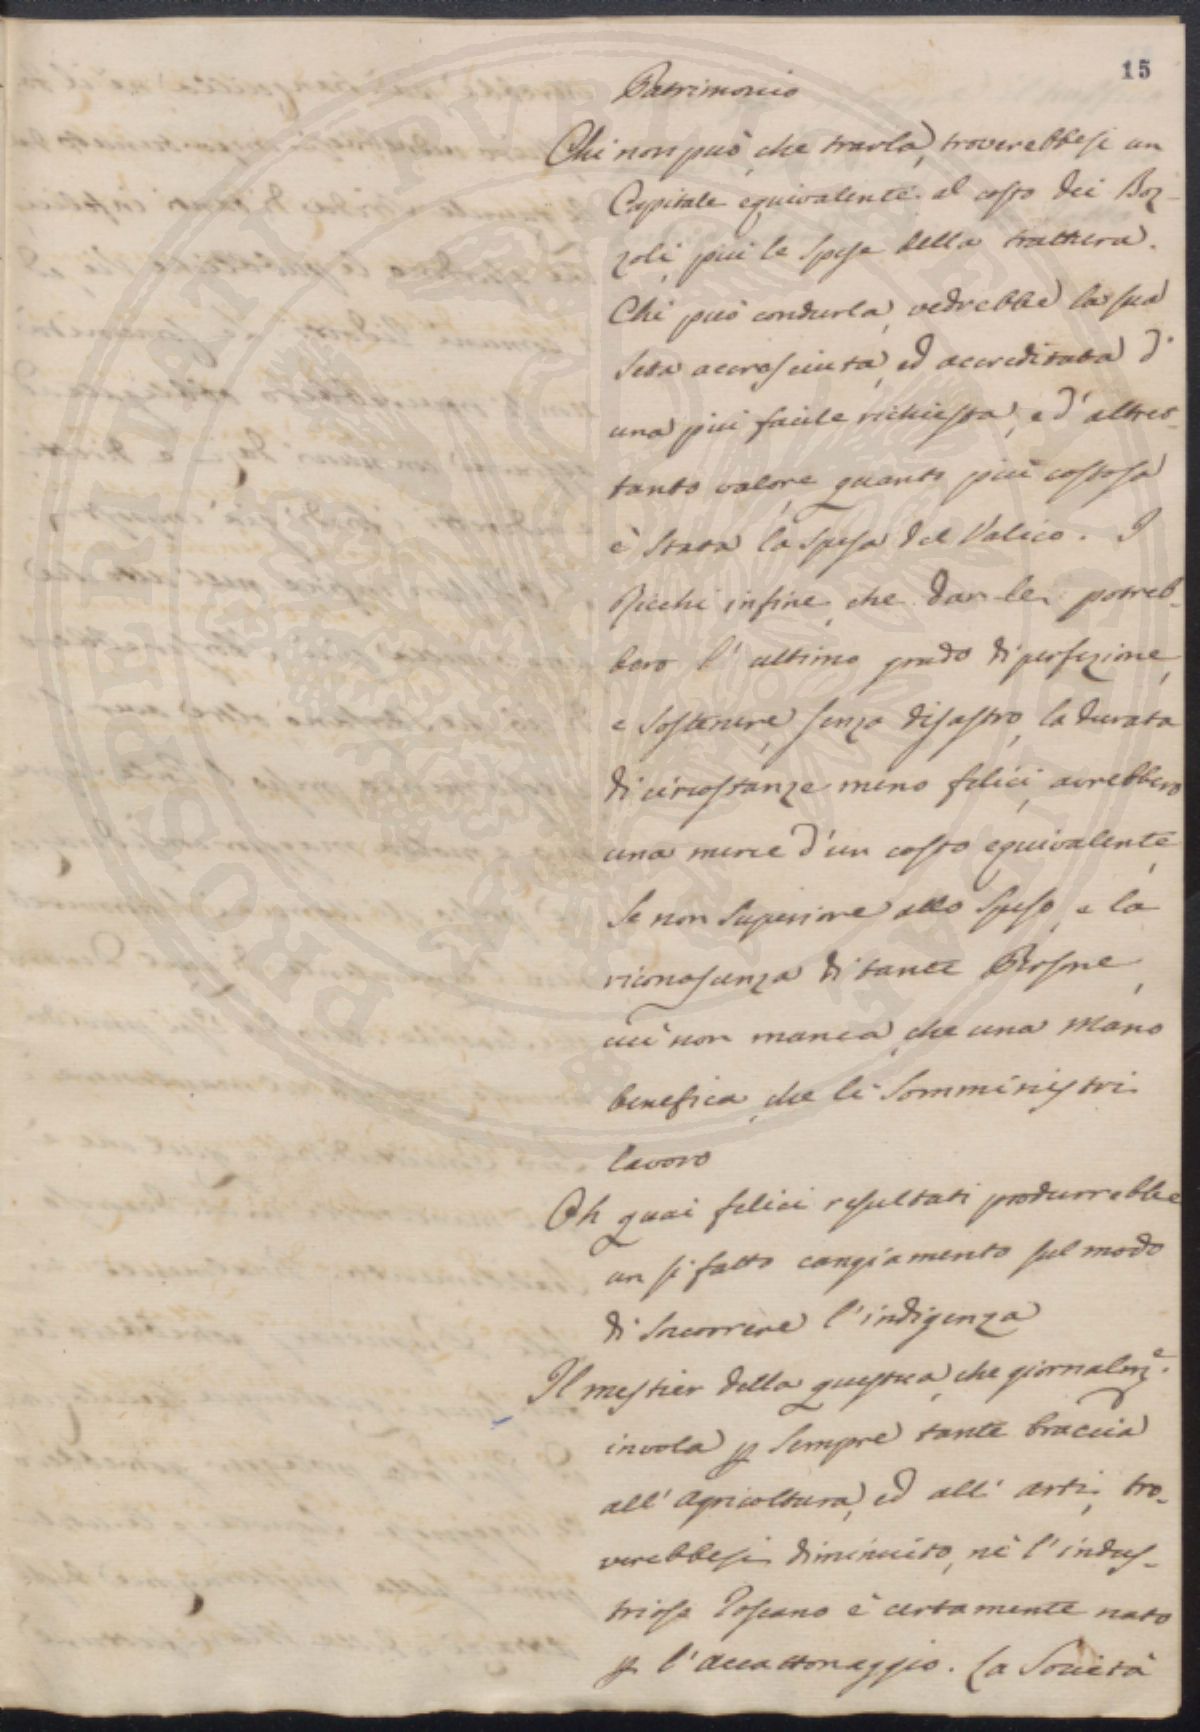 15
Patrimonio
Chi non può, che trarla, troverebbesi un
Capitale equivalente al costo dei Boz-
zoli, più le spese della trattura.
Chi può condurla, vedrebbe la sua
Seta accresciuta, ed accreditata d'
una più facile richiesta, e d'altret-
tanto valore, quanto più costosa
è stata la spesa del Valico. I
Ricchi infine, che dar le potreb-
bero l'ultimo grado di perfezione,
e sostenere, senza disastro, la durata
di circostanze meno felici, avrebbero
una merce d'un costo equivalente,
se non superiore allo speso, e la
riconoscenza di tante Persone,
cui non manca, che una mano
benefica, che li somministri
lavoro
Oh quai felici resultati produrrebbe
un sì fatto cangiamento sul modo
di soccorrere l'indigenza
Il mestier della questua, che giornalm.e
invola p sempre tante braccia
all'Agricoltura, ed all'arti, tro-
verebbesi diminuito, nè l'indus-
trioso Toscano è certamente nato
p l'accattonaggio. La Società
PROSPERITATI PVBLICAE